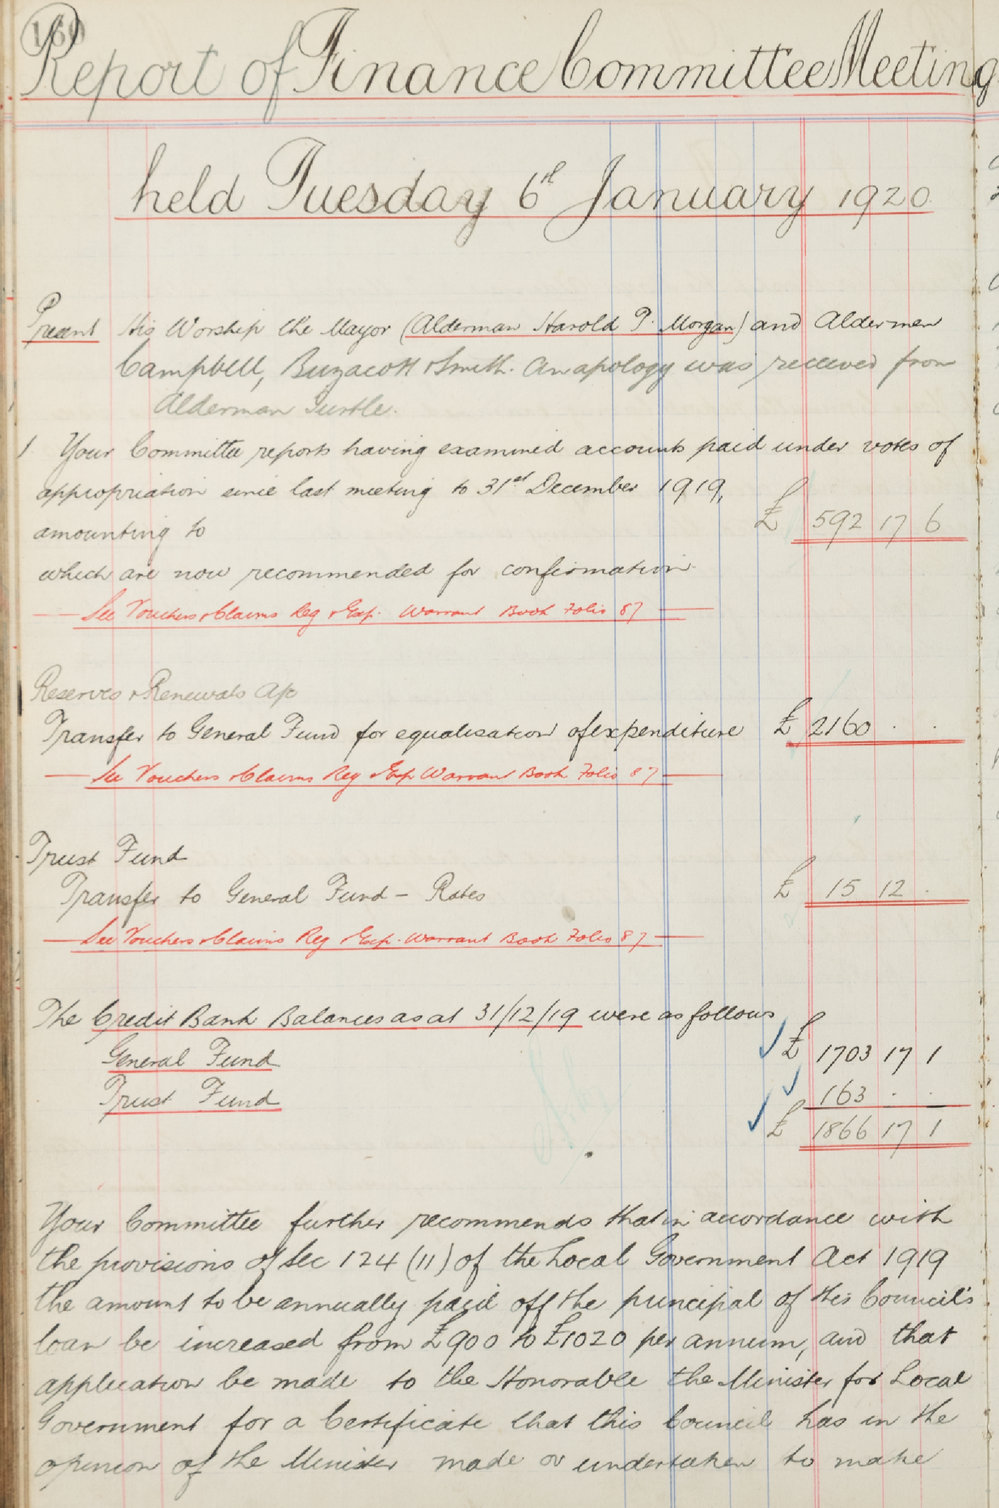 160
Report of Finance Committee Meeting
held Tuesday 6th January 1920
Present His Worship the Mayor (Alderman Harold P. Morgan) and Aldermen
Campbell, Buzacott & Smith. An apology was received from
Alderman Turtle.
1 Your Committee reports having examined accounts paid under votes of
appropriation since last meeting to 31st December 1919,
amounting to £ 592 17 6
which are now recommended for confirmation.
See Vouchers & Claims Reg & Exp. Warrant Book Folio 87
Reserves & Renewals A/c
Transfer to General Fund for equalisation of expenditure £ 2160 . .
See Vouchers & Claims Reg & Exp Warrant Book Folio 87
Trust Fund
Transfer to General Fund - Rates £ 15 12 .
See Vouchers & Claims Reg & Exp. Warrant Book Folio 87
The Credit Bank Balances as at 31/12/19 were as follows
General Fund £ 1703 17 1
Trust Fund 163 . .
£ 1866 17 1
Your Committee further recommends that in accordance with
the provisions of Sec 124 (11) of the Local Government Act 1919
the amount to be annually paid off the principal of this Council's
loan be increased from £900 to £1020 per annum, and that
application be made to the Honorable the Minister for Local
Government for a Certificate that this Council has in the
opinion of the Minister made or undertaken to make